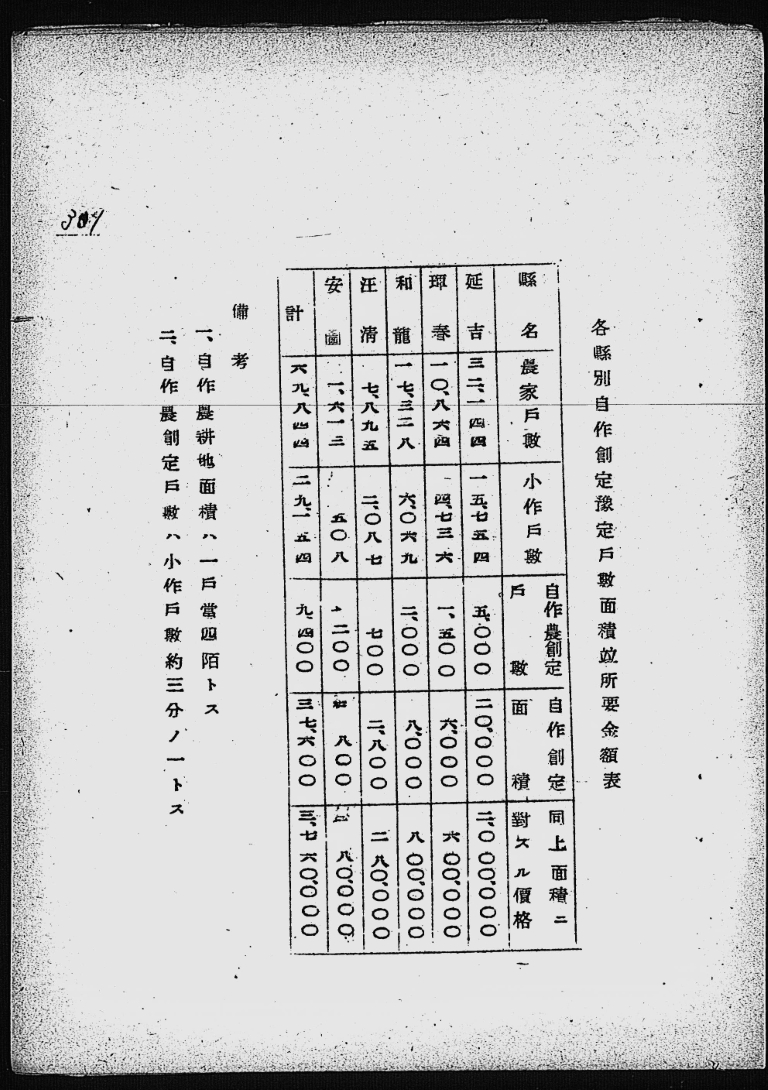 各縣別自作創定豫定戶數面積竝所要金額表
縣名 農家戶數 小作戶數 自作農創定戶數 自作創定面積 同上面積ニ對スル價格
延吉 三二、一四四 一五、七五四 五、〇〇〇 二〇、〇〇〇 二、〇〇〇、〇〇〇
琿春 一〇、八六四 四、七三六 一、五〇〇 六、〇〇〇 六〇〇、〇〇〇
和龍 一七、三二八 六、〇六九 二、〇〇〇 八、〇〇〇 八〇〇、〇〇〇
汪淸 七、八九五 二、〇八七 七〇〇 二、八〇〇 二八〇、〇〇〇
安圖 一、六一三 五〇八 二〇〇 八〇〇 八〇、〇〇〇
計 六九、八四四 二九、一五四 九、四〇〇 三七、六〇〇 三、七六〇、〇〇〇
備考
一、自作農耕地面積ハ一戶當四陌トス
二、自作農創定戶數ハ小作戶數約三分ノ一トス